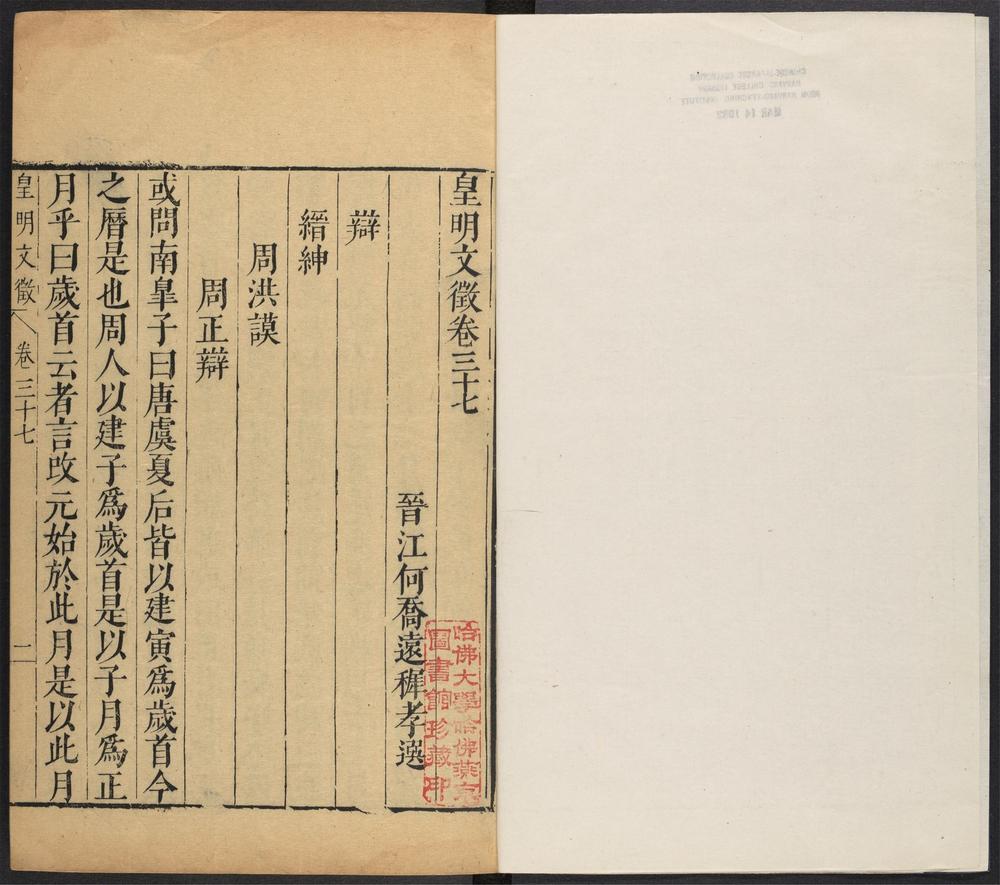 皇明文徵卷三十七
晉江何喬遠穉孝選
辯
縉紳
周洪謨
周正辯
或問南臯子曰唐虞夏后皆以建寅爲歲首今
之曆是也周人以建子爲歲首是以子月爲正
月乎曰歲首云者言改元始於此月是以此月
皇明文徵 卷三十七 一
哈佛大學哈佛燕京
圖書館珍藏印
CHINESE-JAPANESE COLLECTION
HARVARD COLLEGE LIBRARY
HARVARD-YENCHING INSTITUTE
MAR 14 1932